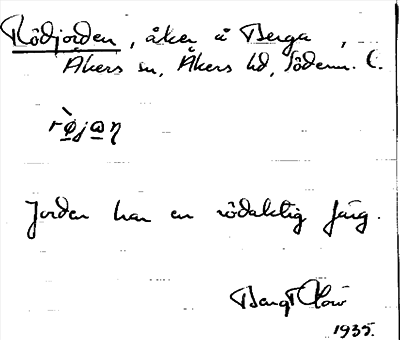 Rödjorden, åker å Berga,
Åkers sn, Åkers hd, Söderm. l.
rø̀jωη
Jorden har en rödaktig färg.
Bengt
1935.